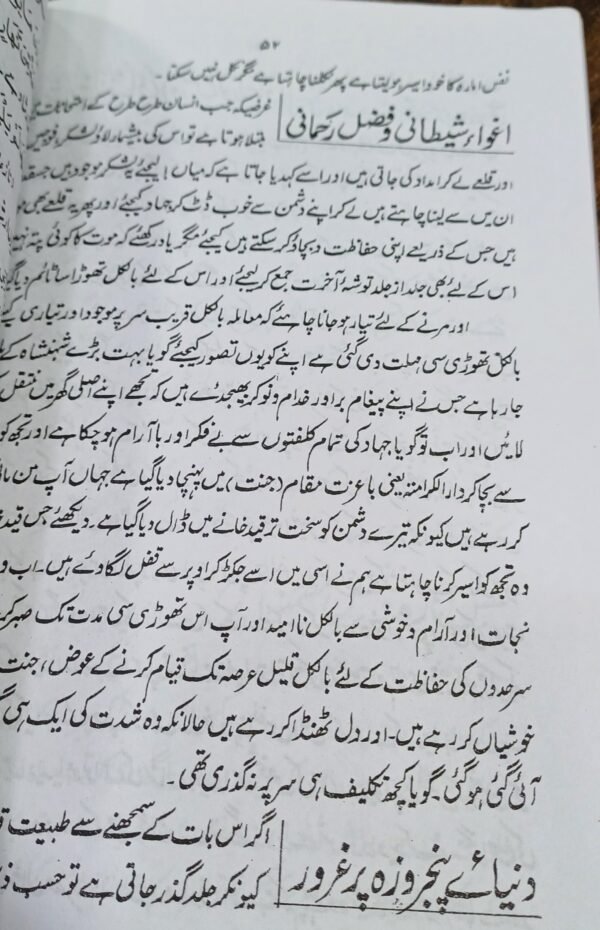 ۵۲
نفس امارہ کا خود اسیر ہو بیٹتا ہے پھر نکلنا چاہتا ہے مگر نکل نہیں سکتا۔
اغواء شیطانی و فضل رحمانی
غرضیکہ جب انسان طرح طرح کے امتحانات میں
مبتلا ہوتا ہے تو اس کی بیشمار لاؤ لشکر، فوجیں
اور قلعے لے کر امداد کی جاتی ہیں اور اسے کہدیا جاتا ہے کہ میاں! لیجئے یہ لشکر موجود ہیں جسقدر
ان میں سے لینا چاہتے ہیں لے کر اپنے دشمن سے خوب ڈٹ کر جہاد کیجئے اور پھر یہ قلعے بھی
ہیں جس کے ذریعے اپنی حفاظت و بچاؤ کر سکتے ہیں کیجئے مگر یاد رکھئے کہ موت کا کوئی پتہ نہیں
اس کے لئے بھی جلد از جلد توشۂ آخرت جمع کر لیجئے اور اس کے لئے بالکل تھوڑا سا ٹائم دیا گیا
اور مرنے کے لئے تیار ہو جانا چاہئے کہ معاملہ بالکل قریب سر پر موجود اور تیاری کے
بالکل تھوڑی سی مہلت دی گئی ہے اپنے کو یوں تصور کیجئے گویا بہت بڑے شہنشاہ کے
جا رہا ہے جس نے اپنے پیغام بر اور خدام و نوکر بھیجدئے ہیں کہ تجھے اپنے اصلی گھر میں منتقل
لائیں اور اب تو گویا جہاد کی تمام کلفتوں سے بے فکر اور با آرام ہو چکا ہے اور تجھ کو
سے بچا کر دار الکرامتہ یعنی باعزت مقام (جنت) میں پہنچا دیا گیا ہے جہاں آپ من
کر رہے ہیں کیونکہ تیرے دشمن کو سخت تر قید خانے میں ڈال دیا گیا ہے۔ دیکھئے جس قید
وہ تجھ کو اسیر کرنا چاہتا ہے ہم نے اسی میں اسے جکڑ کر اوپر سے قفل لگا دئے ہیں۔ اب
نجات اور آرام و خوشی سے بالکل نا امید اور آپ اس تھوڑی سی مدت تک صبر
سرحدوں کی حفاظت کے لئے بالکل قلیل عرصہ تک قیام کرنے کے عوض، جنت
خوشیاں کر رہے ہیں۔ اور دل ٹھنڈا کر رہے ہیں حالانکہ وہ شدت کی ایک ہی
آئی گئی ہو گئی۔ گویا کچھ تکلیف ہی سر پہ نہ گذری تھی۔
دنیائے پنجروزہ پر غرور
اگر اس بات کے سمجھنے سے طبیعت
کیونکر جلد گذر جاتی ہے تو حسب